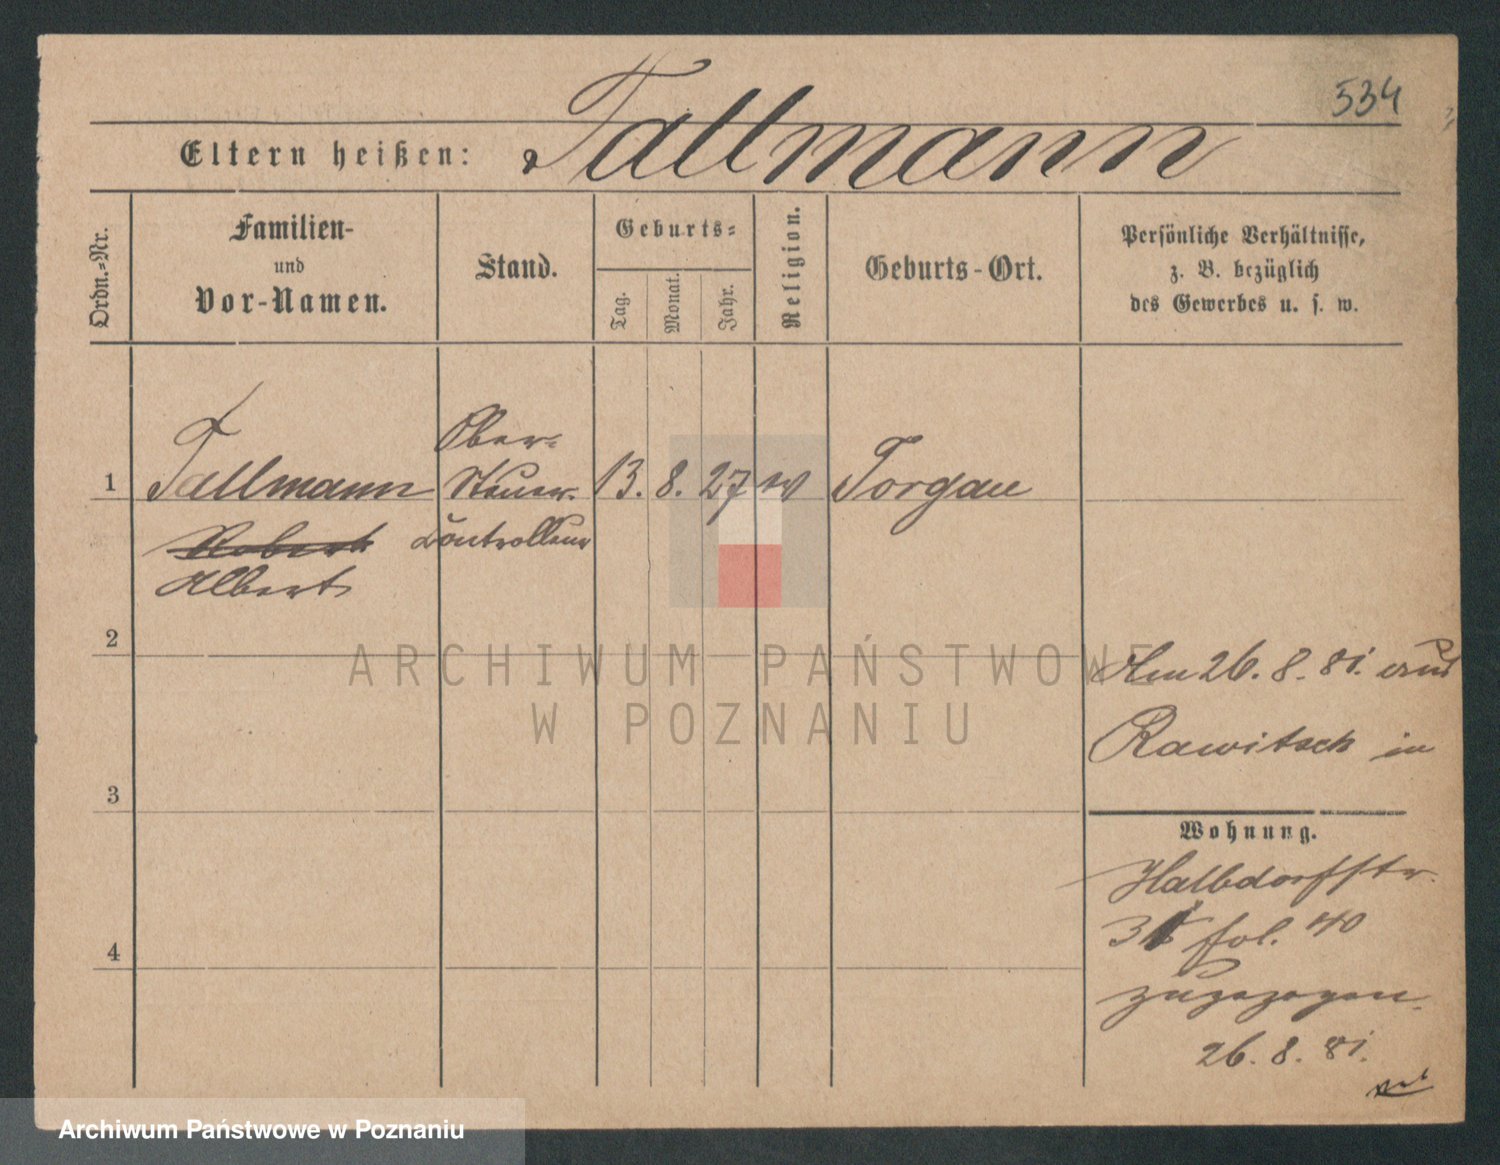 534
Eltern heißen: Tallmann
Ordn.-Nr.
Familien-
und
Vor-Namen.
Stand.
Geburts-
Tag.
Monat.
Jahr.
Religion.
Geburts-Ort.
Persönliche Verhältnisse,
z. B. bezüglich
des Gewerbes u. s. w.
1 Tallmann Ober- Steuer- 13. 8. 27 Torgau
Robert Controlleur
Albert
2
Am 26. 8. 81. aus
Rawitsch in
3
Wohnung.
Halbdorfstr.
fol. 40
4
zugezogen.
26. 8. 81.
ARCHIWUM PAŃSTWOWE
W POZNANIU
Archiwum Państwowe w Poznaniu